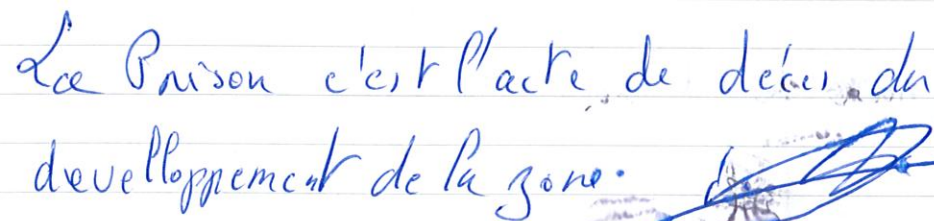 La Prison c'est l'acte de décès du
develloppement de la zone.